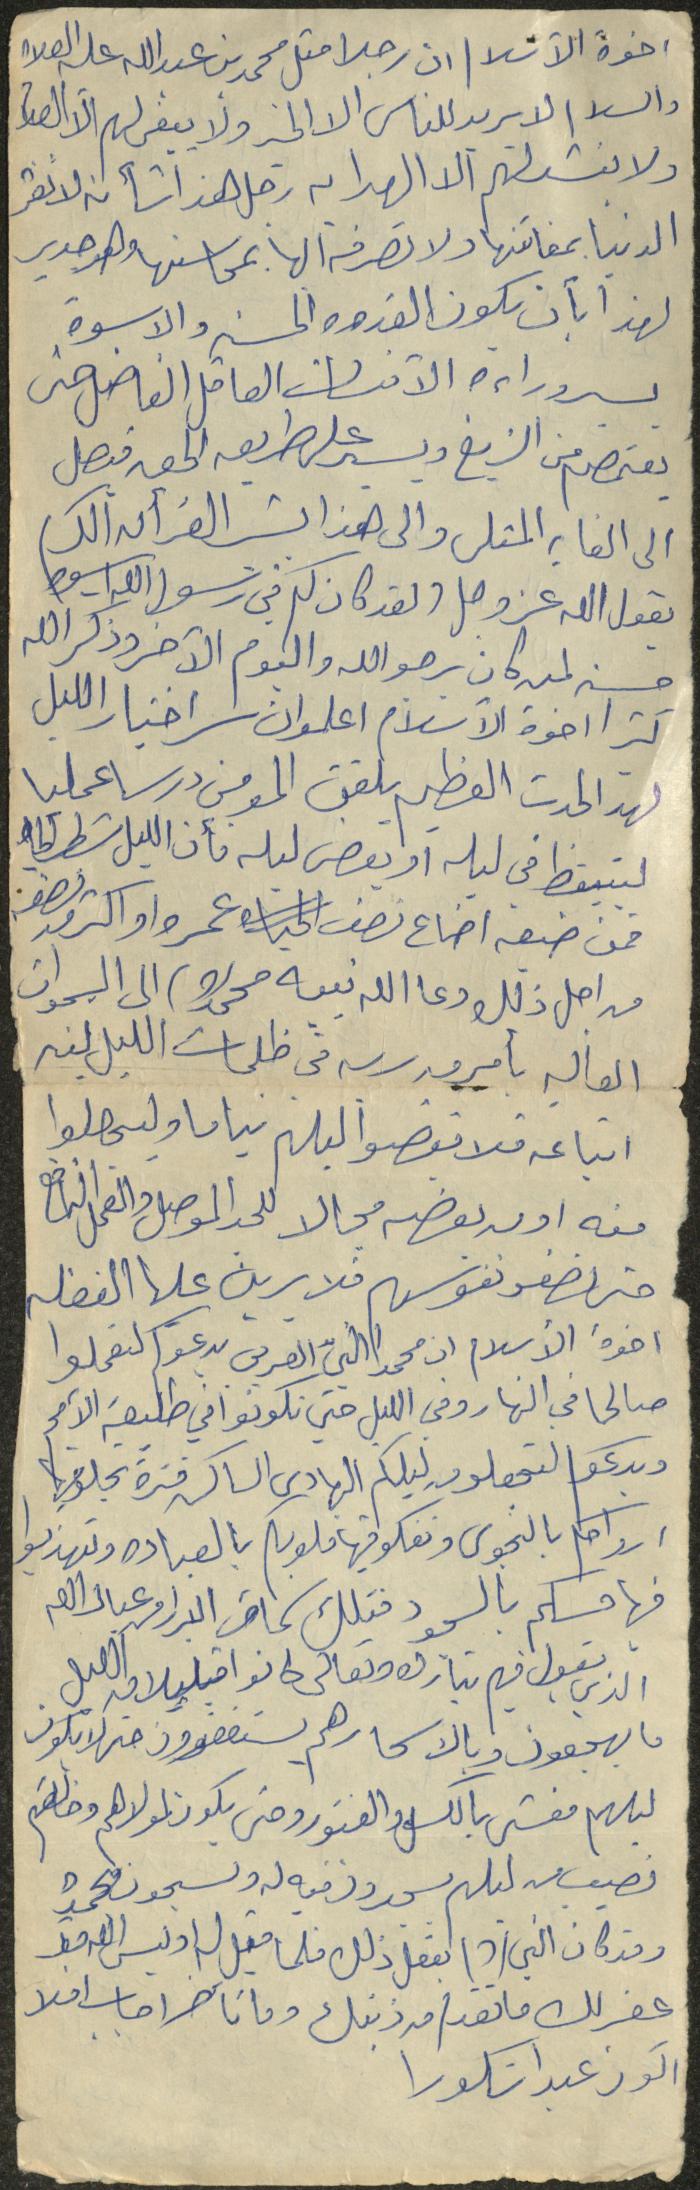 اخوة الآسلام ان رجلا مثل محمد بن عبد الله عليه الصلاة
والسلام لا يريد للناس الا الخير ولا يبغي لهم الا
ولا ينشد لهم الا الهدايه رجل هذا شأنه لا تغر
الدنيا بمفاتنها ولا تصرفه الها بمحاسنها وهو جدير
لهذا بأن يكون القدوه الحسنه والاسوة
يسير وراءه الآنسان العاقل الفاضل حتى
يعتصم من الزيغ ويسير على طريقه الحق فيصل
الى الغايه المثلى والى هذا يشير القرأن الكريم
يقول الله عز وجل ولقد كان لكم في رسول الله اسوه
حسنه لمن كان يرجو الله واليوم الآخر وذكر الله
كثيرا اخوة الآسلام اعلموا ان سر اختيار الليل
لهذا الحدث العظيم يلقن المؤمن درسا عمليا
ليتيقظ في ليله او بعض ليله فأن الليل شطر الحياه
فمن ضيعه اضاع نصف عمره او اكثر من نصفه
من اجل ذلك دعا الله نبيه محمد (ص) الى السموات
العاليه بأمره وسره في ظلمات الليل لينبه
اتباعه فلا يقضوا ليلهم نياما وليجعلوا
منه او من بعضه مجالا للجد الموصل والعمل النافع
حتى تصفو نفوسهم فلا يرين عليها الغفله
اخوة الأسلام ان محمدا النبي العربي يدعوكم لتعملوا
صالحا في النهار وفي الليل حتى تكونوا في طليعة الأمم
ويدعوكم لتجعلوا من ليلكم الهادي الساكن فترة تجلو فيها
ارواحكم بالنجوى وتعكوفيها قلوبكم بالعباده وتهذبوا
فيها بالسجود فتلك سمات الابرار من عباد الله
الذين يقول فيهم تبارك وتعالى كانوا قليلا من الليل
ما يهجعون وبالاسحار هم يستغفرون حتى لا يكون
ليلهم مغشى بالكسل والفتور وحتى يكون لمولاهم وخالقهم
نصيب من ليلهم يسجدون فيه له ويسبحون بحمده
وقد كان النبي (ص) يفعل ذلك فلما قيل له اوليس الله قد
غفر لك ما تقدم من ذنبك وما تأخر اجاب افلا
اكون عبدا شكورا